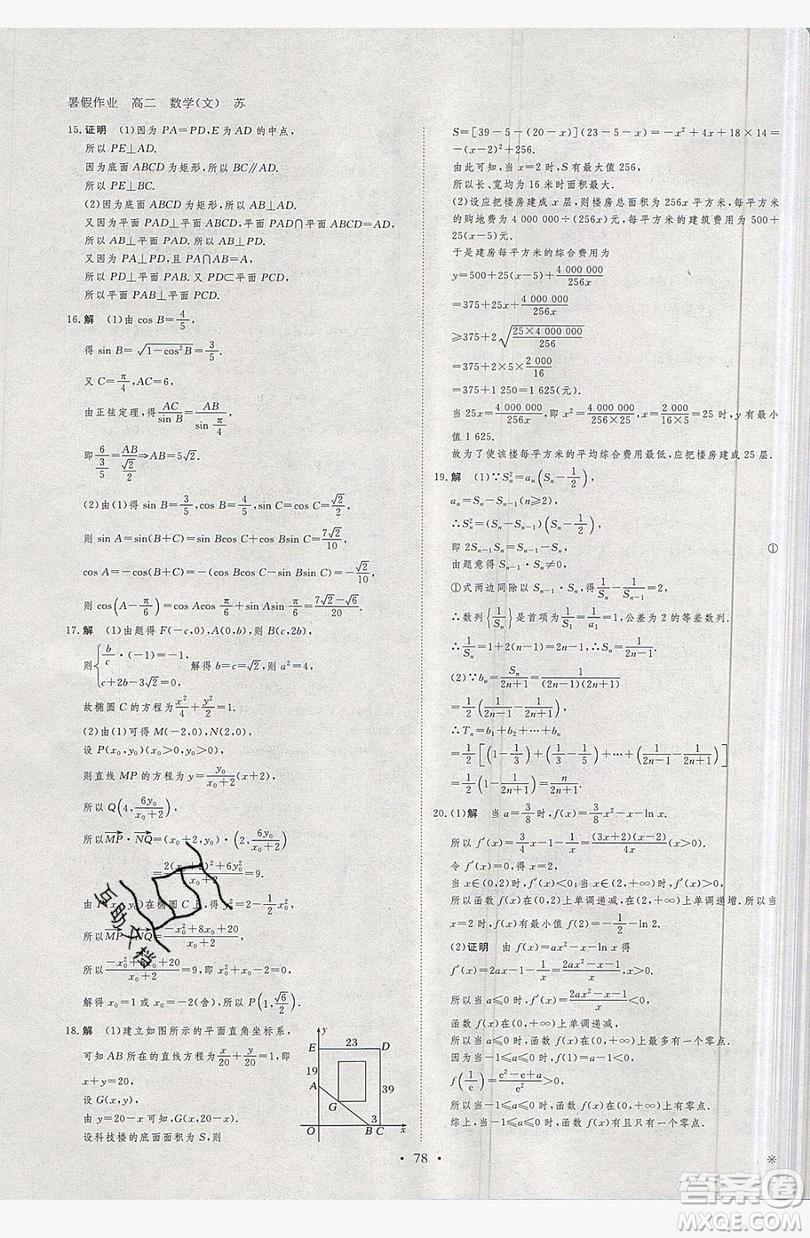 暑假作业 高二 数学(文) 苏
15.证明 (1)因为 PA=PD,E 为 AD 的中点,
所以 PE⊥AD.
因为底面 ABCD 为矩形,所以 BC∥AD.
所以 PE⊥BC.
(2)因为底面 ABCD 为矩形,所以 AB⊥AD.
又因为平面 PAD⊥平面 ABCD,平面 PAD∩平面 ABCD=AD,
所以 AB⊥平面 PAD. 所以 AB⊥PD.
又因为 PA⊥PD,且 PA∩AB=A,
所以 PD⊥平面 PAB. 又 PD⊂平面 PCD,
所以平面 PAB⊥平面 PCD.
16.解 (1)由 cos B=4/5,
得 sin B=√(1-cos²B)=3/5.
又 C=π/4,
由正弦定理,得 AC/sin B=AB/sin π/4,
即 6/(3/5)=AB/(√2/2)⇒AB=5√2.
(2)由(1)得 sin B=3/5,cos B=4/5,sin C=cos C=√2/2,
则 sin A=sin(B+C)=sin Bcos C+cos Bsin C=7√2/10,
cos A=-cos(B+C)=sin Bsin C-cos Bcos C=-√2/10,
则 cos(A-π/6)=cos Acos π/6+sin Asin π/6=(7√2-√6)/20.
17.解 (1)由题得 F(-c,0),B(0,b),则 A(2c,b),
则{b/c·(-1)=-1, c+2√2=3b, 解得 b=c=√2,则 a²=4,
故椭圆 C 的方程为 x²/4+y²/2=1.
(2)由(1)可得 M(-2,0),N(2,0),
设 P(x₀,y₀)(x₀≠±2),
则直线 MP 的方程为 y=y₀/(x₀+2)(x+2),
所以 Q(4,6y₀/(x₀+2)).
所以 MP·NQ=(x₀+2,y₀)·(2,6y₀/(x₀+2))
=(2(x₀+2)²+6y₀²)/(x₀+2)=9.
由 P(x₀,y₀)在椭圆 C 上,得 y₀²=
所以 MP·NQ=(-x₀²+8x₀+20)/(x₀+2)=9.
所以(-x₀²-x₀+2)/(x₀+2)=0.
解得 x₀=1 或 x₀=-2(舍),所以 P(1,√6/2).
18.解 (1)建立如图所示的平面直角坐标系,
可知 AB 所在的直线方程为 x/20+y/20=1,即
x+y=20.
设 G(x,y),
由 y=20-x 可知 G(x,20-x).
设科技楼的底面面积为 S,则
y
E 23 D
19
A
39
G 3
O B C x
S=[39-5-(20-x)](23-5-x)=-x²+4x+18×14=
-(x-2)²+256.
由此可知,当 x=2 时,S 有最大值 256,
所以长、宽均为 16 米时面积最大.
(2)设应把楼房建成 x 层,则楼房总面积为 256x 平方米,每平方米
的购地费为 4 000 000÷(256x)元,每平方米的建筑费为 500+
25(x-5)元.
于是建房每平方米的综合费用为
y=500+25(x-5)+4 000 000/256x
=375+25x+4 000 000/256x
≥375+2√(25×4 000 000/256)
=375+2×(5×2 000)/16
=375+1 250=1 625(元).
当 25x=4 000 000/256x,即 x²=4 000 000/(25×256)=400²/16²,x=400/16=25 时,y 有最小
值 1 625.
故为了使该楼每平方米的平均综合费用最低,应把楼房建成 25 层.
19.解 (1)∵Sₙ²=aₙ(Sₙ-1/2),
aₙ=Sₙ-Sₙ₋₁(n≥2),
∴Sₙ²=(Sₙ-Sₙ₋₁)(Sₙ-1/2),
即 2Sₙ₋₁Sₙ=Sₙ₋₁-Sₙ, ①
由题意得 Sₙ₋₁·Sₙ≠0,
①式两边同除以 Sₙ₋₁·Sₙ,得 1/Sₙ-1/Sₙ₋₁=2,
∴数列{1/Sₙ}是首项为 1/S₁=1/a₁=1,公差为 2 的等差数列.
∴1/Sₙ=1+2(n-1)=2n-1,∴Sₙ=1/(2n-1).
(2)∵bₙ=Sₙ/(2n+1)=1/((2n-1)(2n+1))
=1/2(1/(2n-1)-1/(2n+1)),
∴Tₙ=b₁+b₂+⋯+bₙ
=1/2[(1-1/3)+(1/3-1/5)+⋯+(1/(2n-1)-1/(2n+1))]
=1/2(1-1/(2n+1))=n/(2n+1).
20.(1)解 当 a=3/8时,f(x)=3/8x²-x-ln x.
所以 f′(x)=3/4x-1-1/x=((3x+2)(x-2))/4x(x>0).
令 f′(x)=0,得 x=2,
当 x∈(0,2)时,f′(x)<0;当 x∈(2,+∞)时,f′(x)>0,
所以函数 f(x)在(0,2)上单调递减,在(2,+∞)上单调递增. 所以当
x=2 时,f(x)有最小值 f(2)=-1/2-ln 2.
(2)证明 由 f(x)=ax²-x-ln x 得
f′(x)=2ax-1-1/x=(2ax²-x-1)/x,x>0.
所以当 a≤0 时,f′(x)=(2ax²-x-1)/x<0,
函数 f(x)在(0,+∞)上单调递减,
所以当 a≤0 时,函数 f(x)在(0,+∞)上最多有一个零点.
因为当-1≤a≤0 时,f(1)=a-1<0,
f(1/e)=(e²-e+a)/e²>0,
所以当-1≤a≤0 时,函数 f(x)在(0,+∞)上有零点.
综上,当-1≤a≤0 时,函数 f(x)有且只有一个零点.
• 78 •
※
互助文档
答案圈
MXQE.COM